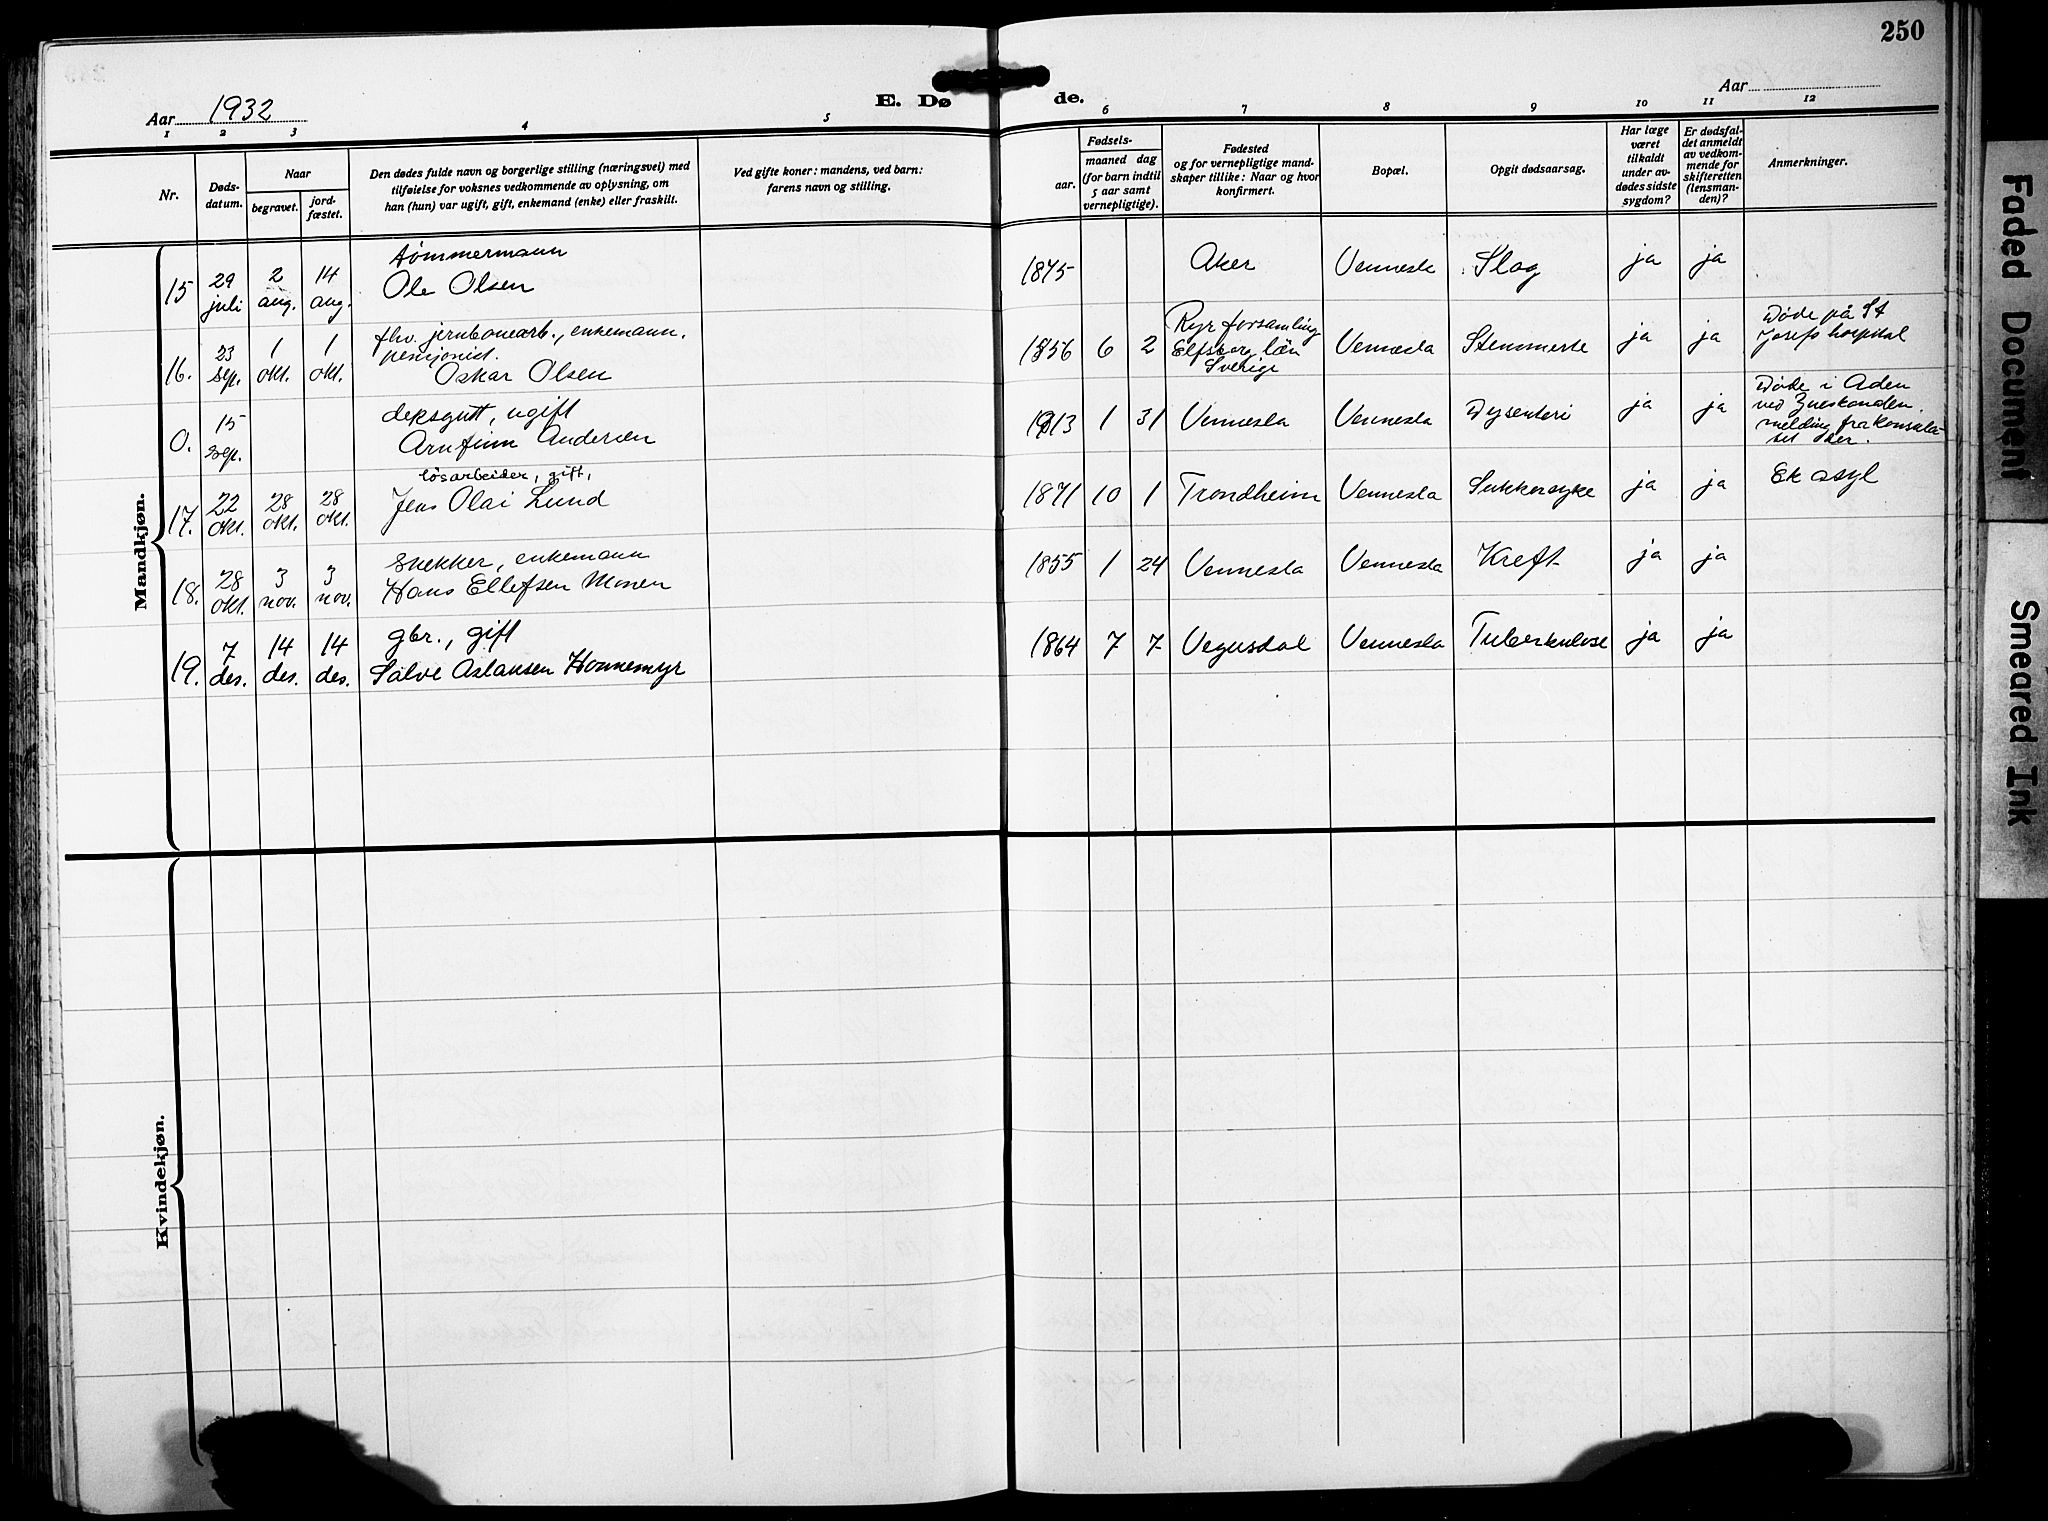 250
Aar 1932
E. Dø
de.
Aar
1 2 3 4 5 6 7 8 9 10 11 12
Nr.
Døds-
datum.
Naar
begravet.
jord-
fæstet.
Den dødes fulde navn og borgerlige stilling (næringsvei) med
tilføielse for voksnes vedkommende av oplysning, om
han (hun) var ugift, gift, enkemand (enke) eller fraskilt.
Ved gifte koner: mandens, ved barn:
farens navn og stilling.
Fødsels-
aar.
maaned dag
(for barn indtil
5 aar samt
vernepligtige).
Fødested
og for vernepligtige mand-
skaper tillike: Naar og hvor
konfirmert.
Bopæl.
Opgit dødsaarsag.
Har læge
været
tilkaldt
under av-
dødes sidste
sygdom?
Er dødsfal-
det anmeldt
av vedkom-
mende for
skifteretten
(lensman-
den)?
Anmerkninger.
Mandkjøn.
tømmermann
15 29 juli 2 aug. 14 aug. Ole Olsen 1875 Aker Vennesla Slag ja ja
fhv. jernbanearb., enkemann.
pensjonist.
16. 23 sep. 1 okt. 1 okt. Oskar Olsen 1856 6 2 Ryr forsamling
Elfsborg län
Sverige
Vennesla ja ja Døde på St
Josefs hospital
deksgutt, ugift
0. 15 sep. Arnfinn Andersen 1913 1 31 Vennesla Vennesla Dysenteri ja ja Døde i Aden
ved
melding fra konsula-
tet der.
løsarbeider, gift,
17. 22 okt. 28 okt. 28 okt. Jens Olai Lund 1871 10 1 Trondheim Vennesla Sukkersyke ja ja Ek asyl
snekker, enkemann
18. 28 okt. 3 nov. 3 nov. Hans Ellefsen Mosen 1855 1 24 Vennesla Vennesla Kreft ja ja
gbr., gift
19. 7 des. 14 des. 14 des. Salve Aslansen Honnemyr 1864 7 7 Vegusdal Vennesla Tuberkulose ja ja
Kvindekjøn.
Faded Document
Smeared Ink